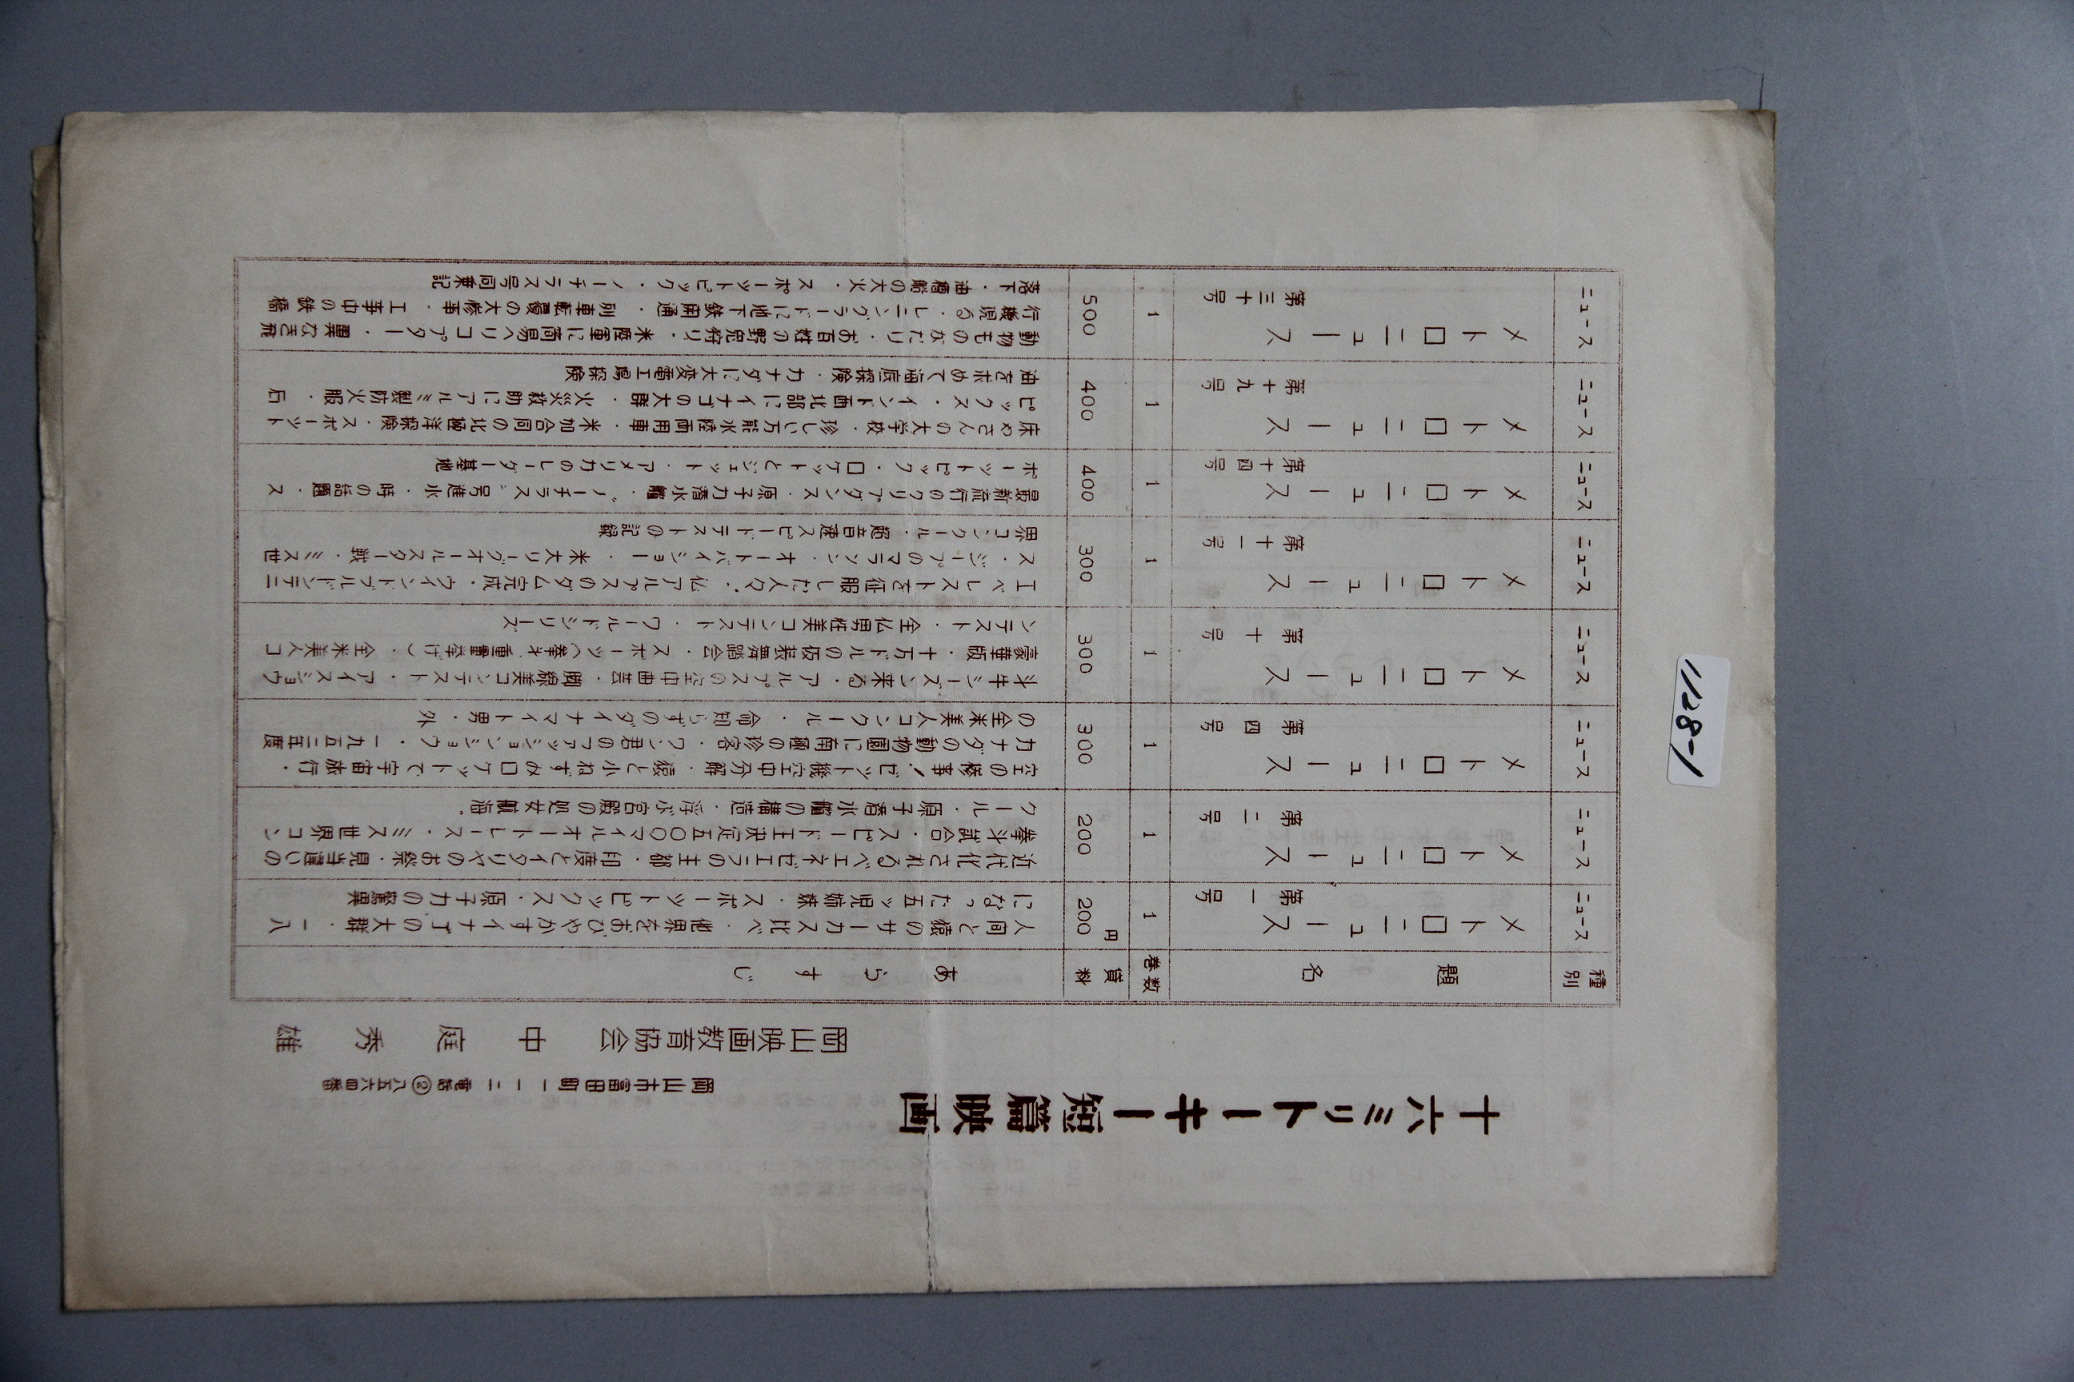 十六ミリトーキー短篇映画
岡山市富田町一一二 電話②八五六四番
岡山映画教育協会 中庭秀雄
種別
題名
巻数
貸料
あらすじ
ニュース
メトロニュース
第一号
1
200円
人間と猿のサーカス比べ・他界をおびやかすイナゴの大群・一八
になった五ッ児姉妹・スポーツトピックス・原子力の驚異
ニュース
メトロニュース
第二号
1
200
近代化されるベエネゼエラの主都・印度とイタリヤのお祭・見当違いの
拳斗試合・スピード王決定五〇〇マイルオートレース・ミス世界コン
クール・原子潜水艦の構造・浮ぶ宮殿の処女航海。
ニュース
メトロニュース
第四号
1
300
空の椿事!ゼット機空中分解・猿と小ねずみロケットで宇宙旅行・
カナダの動物園に南極の珍客・ワン君のファッションショウ・一九五二年度
の全米美人コンクール・命知らずのダイナマイト男・外
ニュース
メトロニュース
第十号
1
300
斗牛シーズン来る・アルプスの空中曲芸・脚線美コンテスト・アイスショウ
豪華版・十万ドルの仮装舞踏会・スポーツ(拳斗、重量挙げ)・全米美人コ
ンテスト・全仏男性美コンテスト・ワールドシリーズ
ニュース
メトロニュース
第十一号
1
300
エベレストを征服した人々・仏アルプスのダム完成・ウインドブルドンテニ
ス・ジープのマラソン・オートバイショー・米大リーグオールスター戦・ミス世
界コンクール・超音速スピードテストの記録
ニュース
メトロニュース
第十四号
1
400
最新流行のクリアダンス・原子力潜水艦〝ノーチラス〟号進水・時の話題・ス
ポーツトピック・ロケットとジェット・アメリカのレーダー基地
ニュース
メトロニュース
第十九号
1
400
床やさんの大学校・珍しい万能水陸両用車・米加合同の北極洋探険・スポーツト
ピックス・インド西北部にイナゴの大群・火災救助にアルミ製防火服・石
油をボめて海底探険・カナダに大変電工場探険
ニュース
メトロニュース
第三十号
1
500
動物ものがたり・お百姓の野兎狩り・米陸軍に簡易ヘリコプター・翼なき飛
行機現る・レニングラードに地下鉄開通・列車転覆の大惨事・工事中の鉄橋
落下・油槽船の大火・スポーツトピック・ノーチラス号同乗記
1128-1